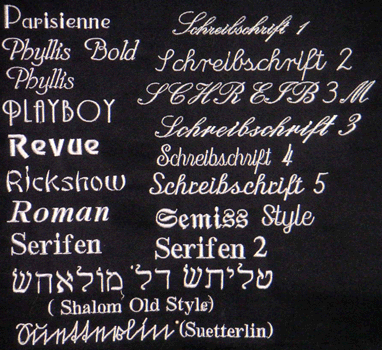 Parisienne
Phyllis Bold
Phyllis
PLAYBOY
Revue
Rickshow
Roman
Serifen
Schreibschrift 1
Schreibschrift 2
SCHREIB3M
Schreibschrift 3
Schreibschrift 4
Schreibschrift 5
Semiss Style
Serifen 2
טליתש דל' מולאהש
( Shalom Old Style)
Suetterlin (Suetterlin)